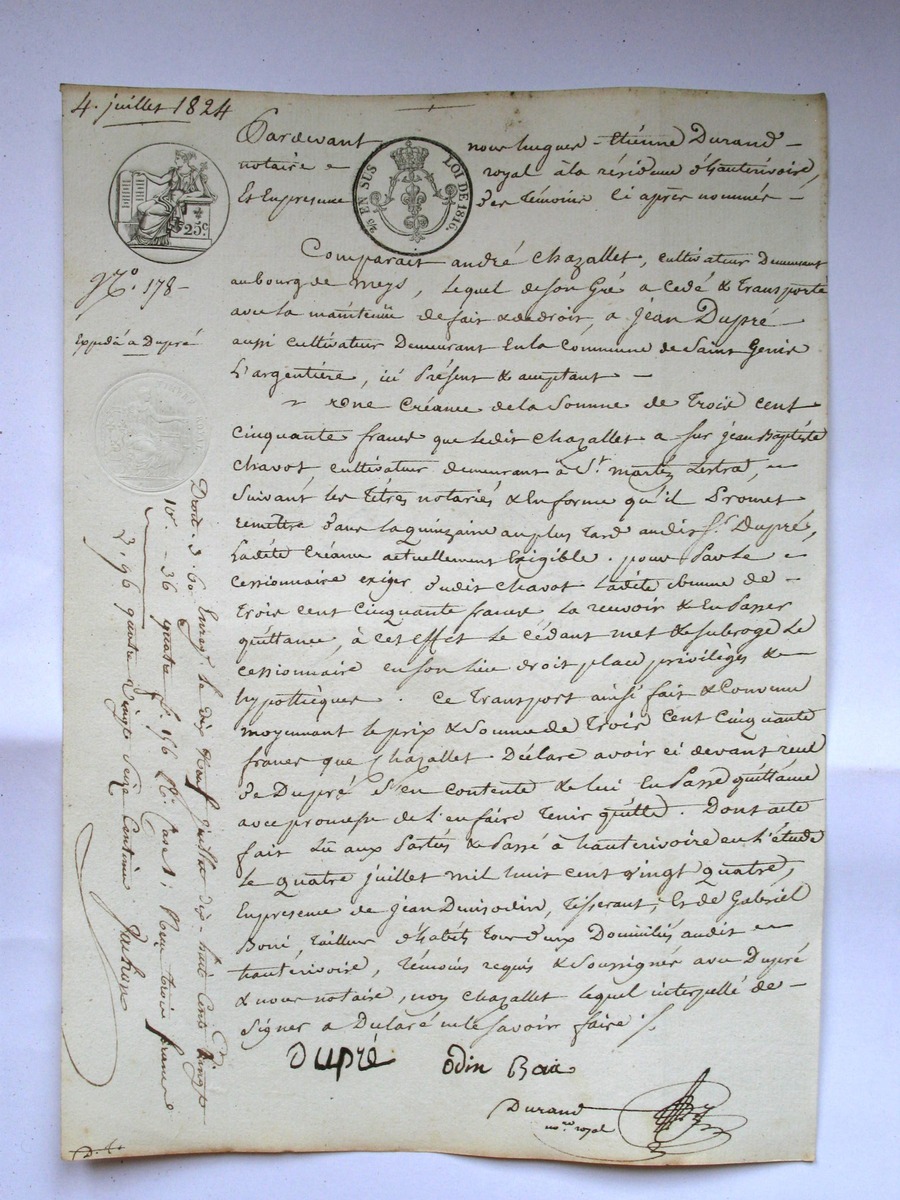 4. juillet 1824
Pardevant nous hugues-Etiénne Durand
notaire royal à la résidence d'hauterivoire,
Et En presence des témoins ci après nommés -
25 EN SUS LOI DE 1816.
25c
N.o 178-
Expédié à Dupré
Comparait andré Chazallet, cultivateur Demeurant
au bourg de meys, lequel de son Gré a cédé & transporté
avec la maintenüe de fait & de droit, a jean Dupré
aussi cultivateur Demeurant En la Commune de Saint Genis
L'argentière, ici présent & acceptant -
une Créance de la Somme de Trois cent
cinquante francs que ledit Chazallet a sur jean Baptiste
chavot cultivateur demeurant à St. martin Lestra, -
Suivant les têtres notariés & En forme qu'il Promet
remettre dans la quinzaine au plus tard audit Sr. Dupré,
Ladite Créance actuellement Exigible. pour Par le
cessionnaire exiger dudit Chavot Ladite somme de -
Trois cent Cinquante francs La recevoir & En Passer
quittance, à cet effet le cédant met & subroge Le
cessionnaire en son lieu droit place privilèges & -
hypothèques. Ce Transport ainsi fait & Convenu
moyennant le prix & Somme de Trois Cent Cinquante
francs que Chazallet Déclare avoir ci devant reçu
de Dupré s'en contente & lui En Passe quittance
avec promesse de l'en faire Tenir quitte. Dont acte
fait Lu aux Parties & Passé à hauterivoire en l'étude
Le quatre juillet mil huit cent vingt quatre,
En presence de jean Denis odin, tisserant, Et de Gabriel
Boni, Tailleur d'habits tous deux Domiciliés audit
hauterivoire, témoins requis & Soussignés avec Dupré
& nous notaire, non Chazallet lequel interpellé de -
Signer a Déclaré ne le savoir faire /.
Dupré odin Boni
Durand
nore royal
Droit 3. 60 Enregé le dix Neuf juillet dix-huit Cent Vingt
10e - 36 quatre
3. 96 quatre Vingt Seize Centimes.